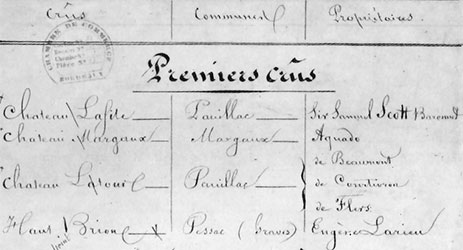 Crûs Communes Propriétaires
CHAMBRE DE COMMERCE
BORDEAUX
Premiers crûs
Chateau Lafite Pauillac Sir Samuel Scott
Chateau Margaux Margaux Aguado
de Beaumont
Chateau Latour Pauillac de Courtivron
de Flers
Haut Brion Pessac (Graves) Eugene Larieu